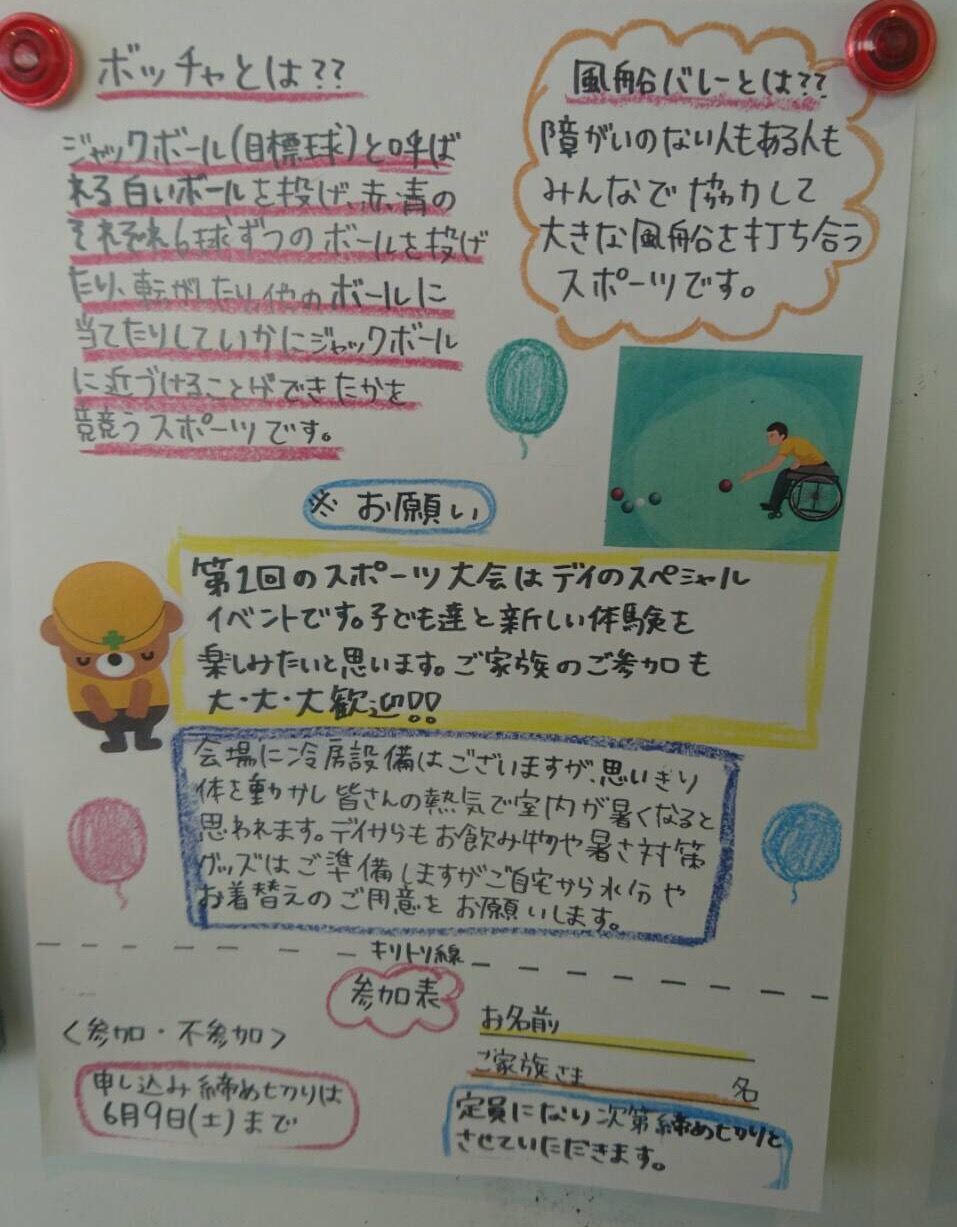 ボッチャとは??
ジャックボール(目標球)と呼ば
れる白いボールを投げ、赤、青の
それぞれ6球ずつのボールを投げ
たり、転がしたり他のボールに
当てたりしていかにジャックボール
に近づけることができたかを
競うスポーツです。
風船バレーとは??
障がいのない人もある人も
みんなで協力して
大きな風船を打ち合う
スポーツです。
※お願い
第1回のスポーツ大会はデイのスペシャル
イベントです。子ども達と新しい体験を
楽しみたいと思います。ご家族のご参加も
大・大・大歓迎!!
会場に冷房設備はございますが、思いきり
体を動かし皆さんの熱気で室内が暑くなると
思われます。デイからもお飲み物や暑さ対策
グッズはご準備しますがご自宅から水分や
お着替えのご用意をお願いします。
キリトリ線
参加表
<参加・不参加>
お名前
ご家族さま 名
申し込み締め切りは
6月9日(土)まで
定員になり次第締め切りと
させていただきます。